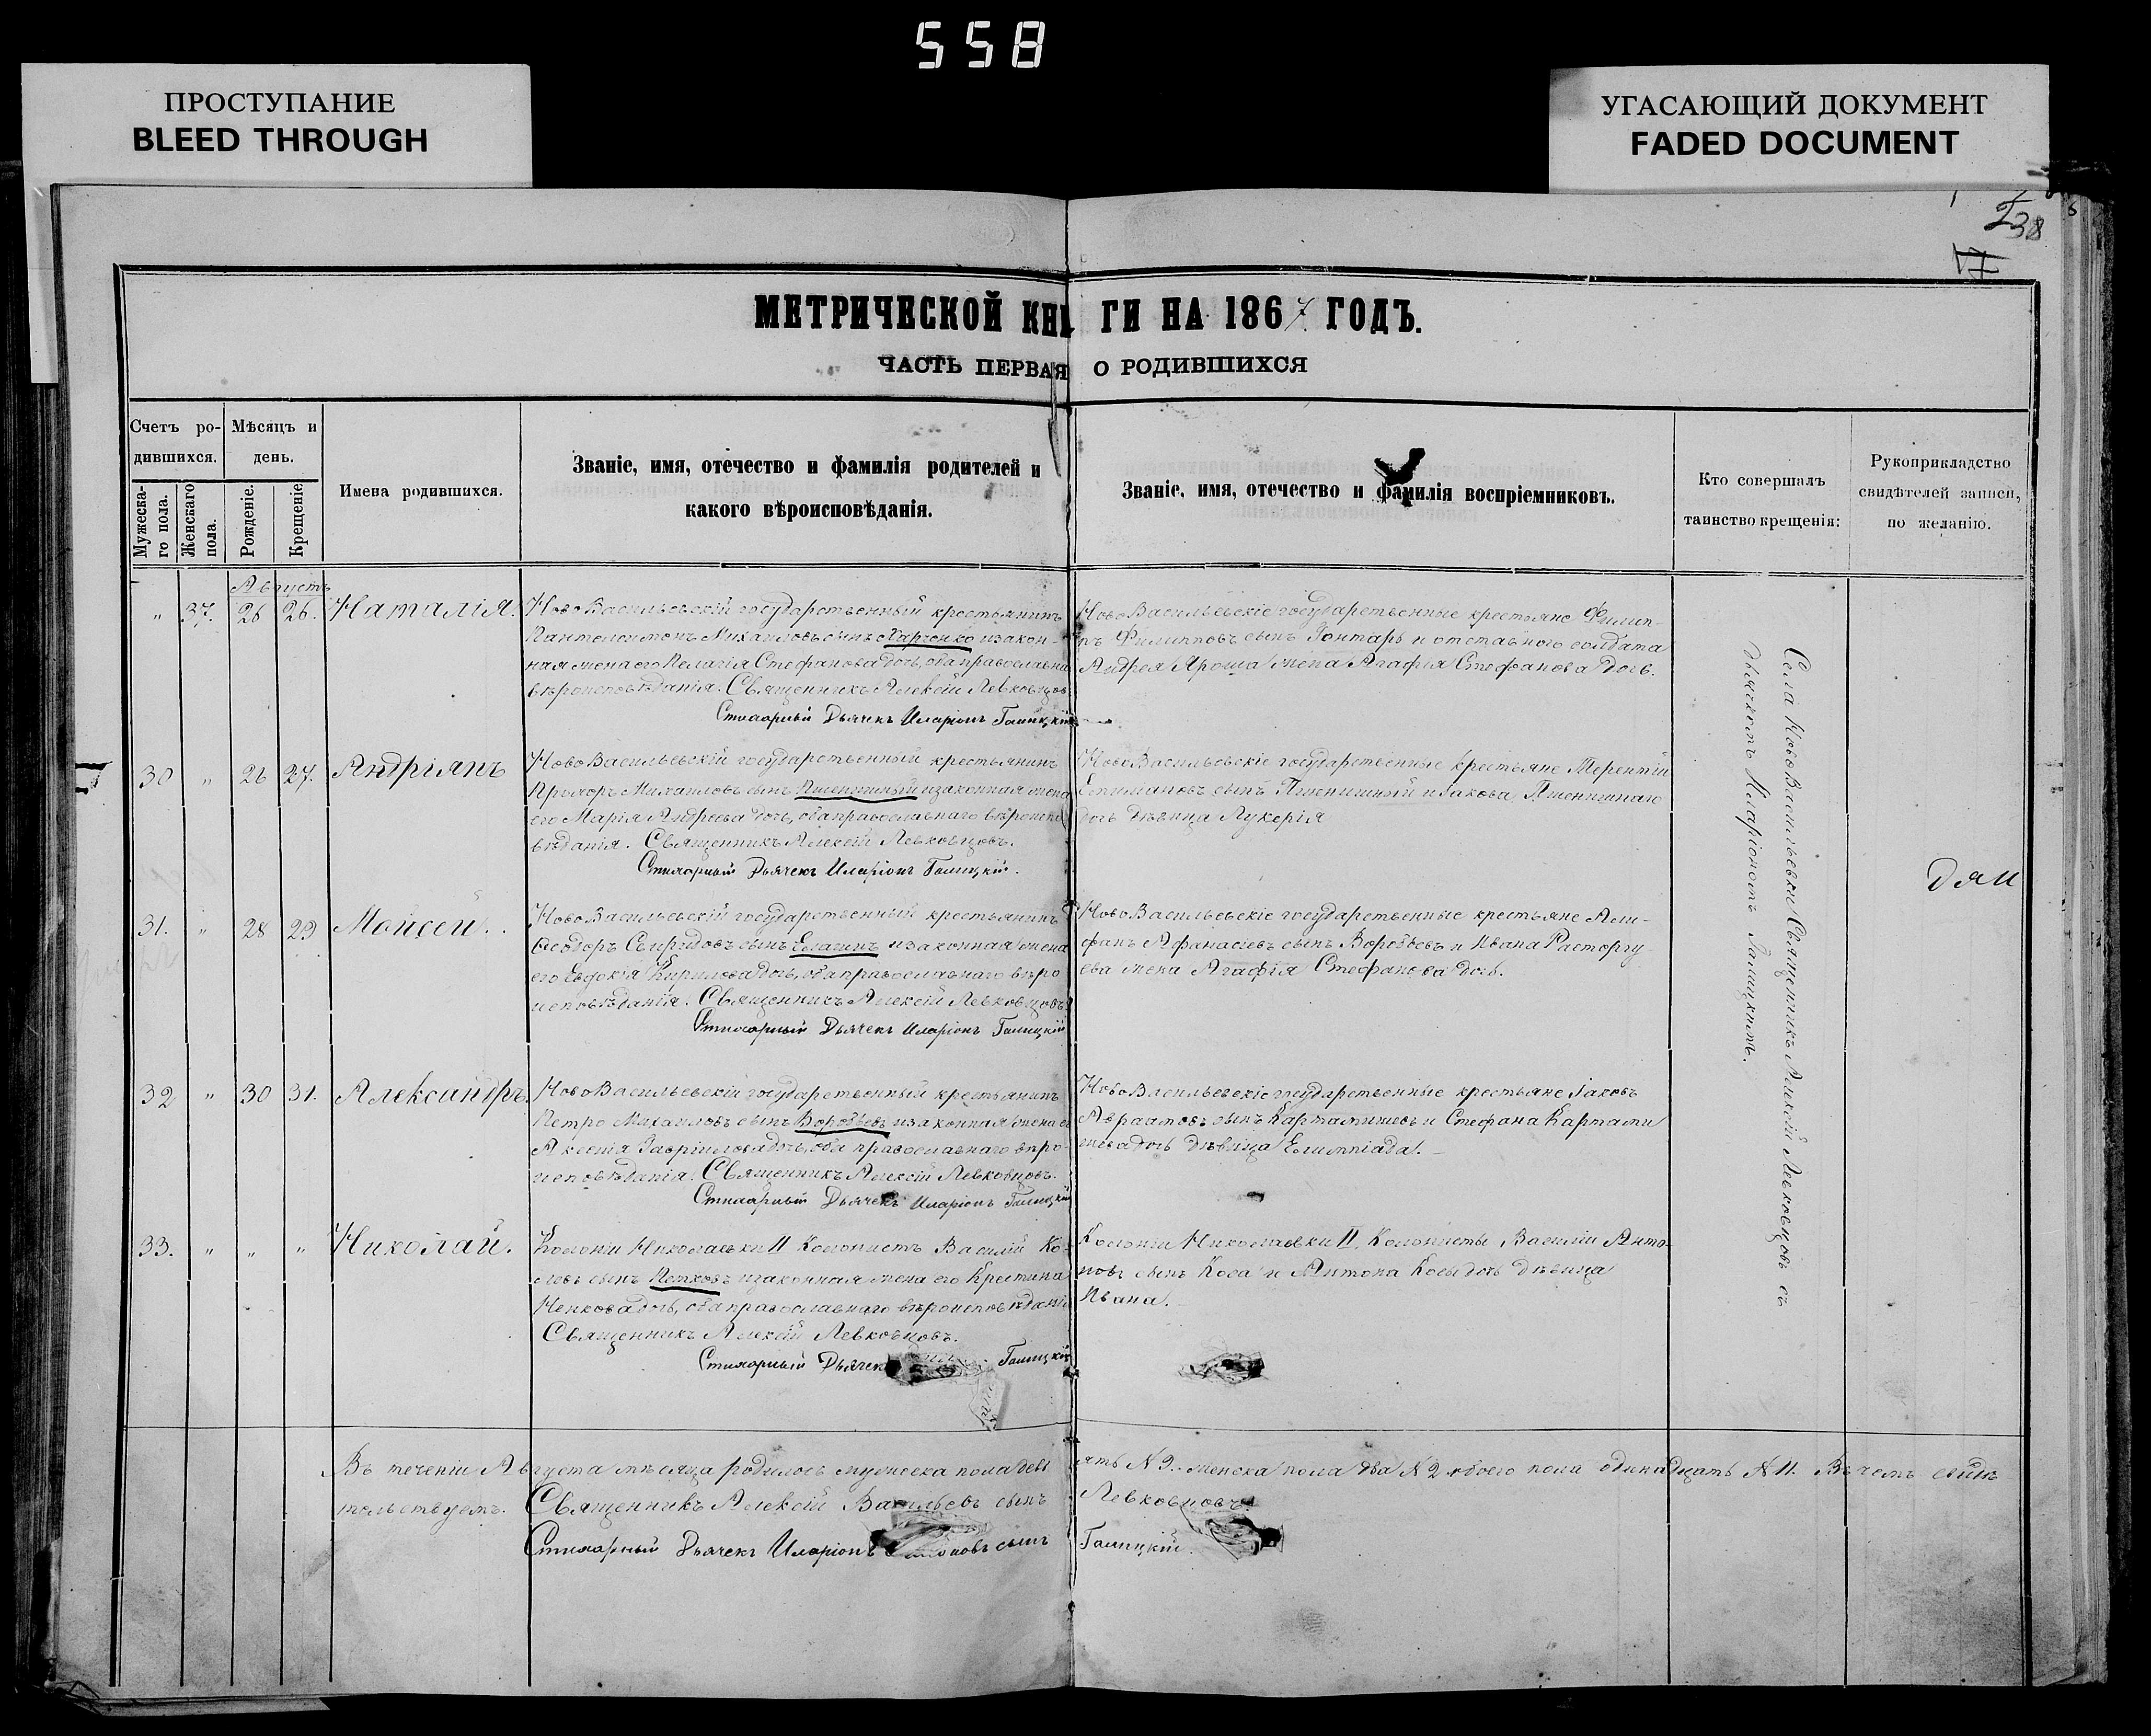 558
ПРОСТУПАНИЕ
BLEED THROUGH
УГАСАЮЩИЙ ДОКУМЕНТ
FADED DOCUMENT
238
17
МЕТРИЧЕСКОЙ КНИГИ НА 1867 ГОДЪ.
ЧАСТЬ ПЕРВАЯ О РОДИВШИХСЯ
Счетъ родившихся.
Мужескаго пола.
Женскаго пола.
Мѣсяцъ и день.
Рожденіе.
Крещеніе.
Имена родившихся.
Званіе, имя, отечество и фамилія родителей и
какого вѣроисповѣданія.
Званіе, имя, отечество и фамилія воспріемниковъ.
Кто совершалъ
таинство крещенія:
Рукоприкладство
свидѣтелей записи,
по желанію.
Августъ
" 37. 26 26. Наталія.
НовоВасильевскій государственный крестьянинъ
Пантелеимонъ Михаиловъ сынъ Харченко и закон-
ная жена его Пелагія Стефанова дочь, оба православна
вѣроисповѣданія. Священникъ Алексій Левковцовъ
Стихарный Дьячекъ Иларіонъ Галицкій
НовоВасильевскіе государственные крестьяне Филип-
пъ Филипповъ сынъ Гонтарь и отставного солдата
Андрея Яроша жена Агафія Стефанова дочь.
30 " 26 27. Андріянъ
НовоВасильевскій государственный крестьянинъ
Михаиловъ сынъ Пшеничный и законная жена
его Марія Андреева дочь, оба православнаго вѣроиспо
вѣданія. Священникъ Алексій Левковцовъ.
Стихарный Дьячекъ Иларіонъ Галицкій.
НовоВасильевскіе государственные крестьяне Терентій
сынъ Пшеничный и Іакова Пшеничнаго
дочь дѣвица Лукерія
31. " 28 29 Мойсей.
НовоВасильевскій государственный крестьянинъ
Ѳеодоръ Свиридовъ сынъ и законная жена
его Евдокія Кирилова дочь, оба православнаго вѣро
исповѣданія. Священникъ Алексій Левковцовъ
Стихарный Дьячекъ Иларіонъ Галицкій
НовоВасильевскіе государственные крестьяне
Афанасіевъ сынъ Воробьевъ и Ивана Расторгу-
ева жена Агафія Стефанова дочь.
32 " 30 31. Александръ.
НовоВасильевскій государственный крестьянинъ
Петро Михаиловъ сынъ Воробьевъ и законная жена е
Аксенія Гавріилова дочь, оба православнаго вѣро-
исповѣданія. Священникъ Алексій Левковцовъ.
Стихарный Дьячекъ Иларіонъ Галицкій
НовоВасильевскіе государственные крестьяне Іаковъ
Авраамовъ сынъ Картамишевъ и Стефана Картами
шева дочь дѣвица Елимпіада.
33. " " " Николай.
Колоніи Николаевки II Колонистъ Василій Ко-
левъ сынъ Петковъ и законная жена его Крестина
Ненкова дочь, оба православнаго вѣроисповѣданія
Священникъ Алексій Левковцовъ.
Стихарный Дьячекъ Галицкій
Колоніи Николаевки II. Колонисты Василій Анто-
новъ сынъ Коса и Антона Косы дочь дѣвица
Ивана.
Села НовоВасильевки Священникъ Алексій Левковцовъ съ
дьячкомъ Иларіономъ Галицкимъ.
Въ теченіи Августа мѣсяца родилось мужеска пола девять N 9. женска пола два N 2 обоего пола одинадцать N 11. Въ чемъ свидѣ
тельствуемъ. Священникъ Алексій Васильевъ сынъ Левковцовъ.
Стихарный Дьячекъ Иларіонъ сынъ Галицкій.